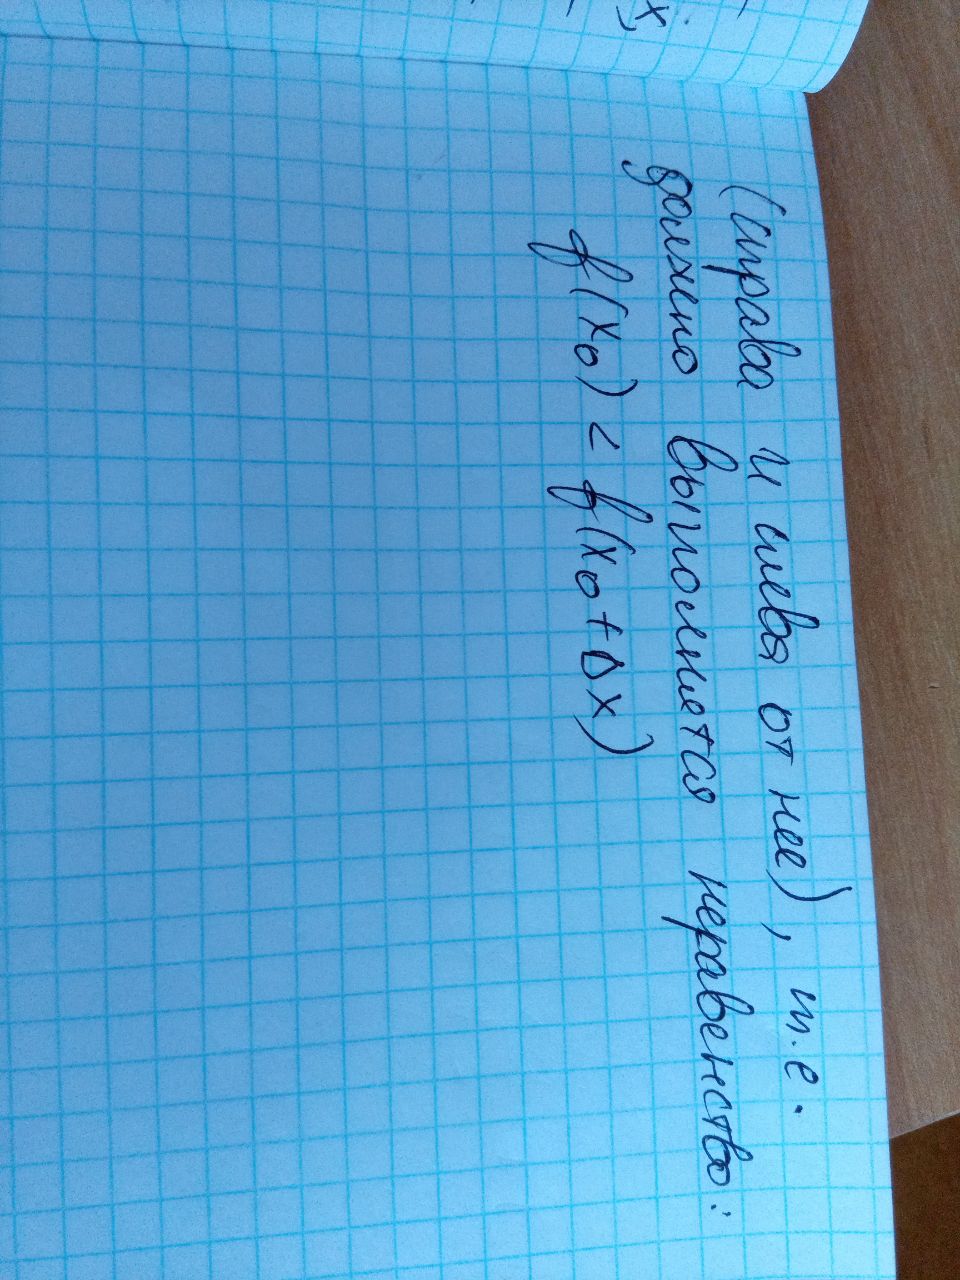 (справа и слева от нее), т.е.
должно выполнятся неравенство:
f(x₀) < f(x₀+Δx)
x,